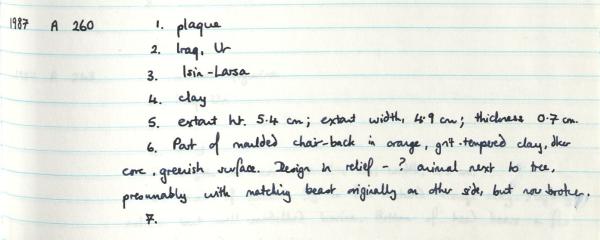 1987 A 260 1. plaque
2. Iraq, Ur
3. Isin-Larsa
4. clay
5. extant ht. 5.4 cm; extant width, 4.9 cm; thickness 0.7 cm.
6. Part of moulded chair-back in orange, grit-tempered clay, dker
core, greenish surface. Design in relief - ? animal next to tree,
presumably with matching beast originally on other side, but now broken.
7.